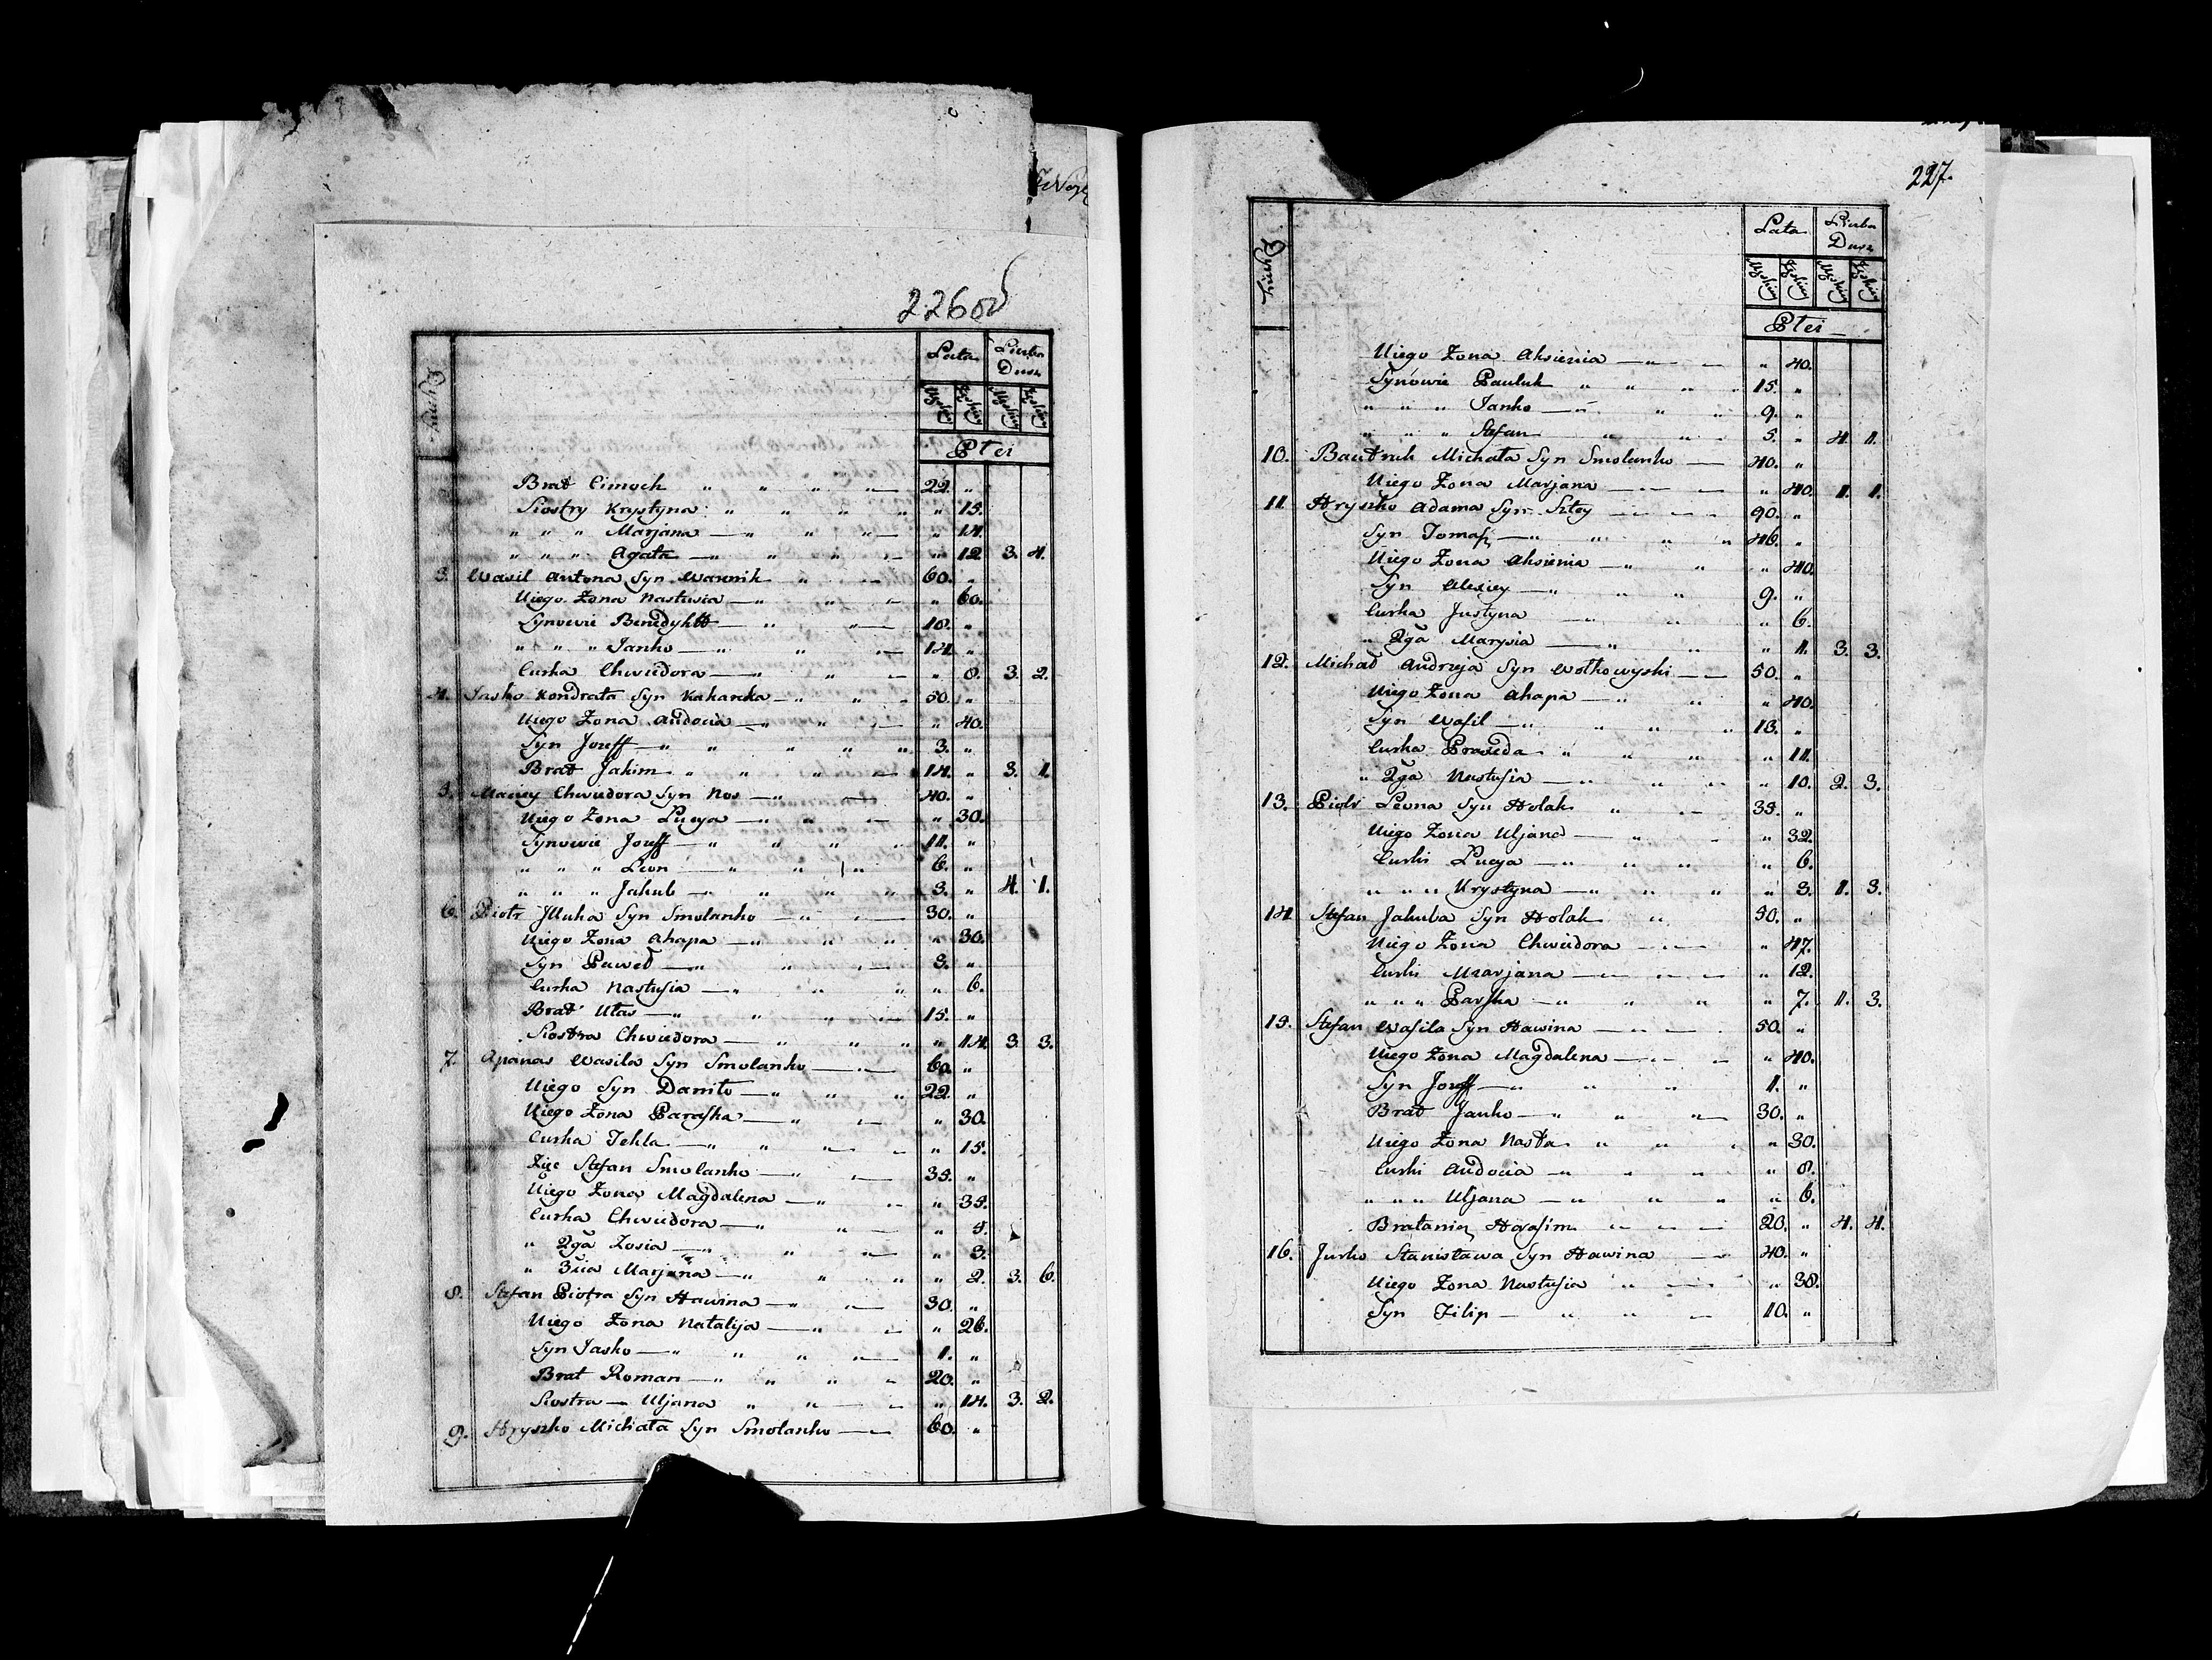 226 od
Lata Liczba Dusz
Męskiey Żeńskiey Męskiey Żeńskiey
Płci
Brat Cimoch " " " — 22. "
Siostry Krystyna " " " " " 15.
" " " Marjana — " " " — " 14.
" " " Agata — " " " — " 12. 3. 4.
3. Wasil Antona Syn Wawnik " — 60. "
Uiego Żona Nastusia — " " — " 60.
Synowie Benedykt — " " — 18. "
" " " Janko — " " — 14. "
Curka Chwiedora — " " — " 8. 3. 2.
4. Jaśko Kondrata Syn Kakareka — " " — 50. "
Uiego Żona Audocia — " " — " 40.
Syn Jozeff — " " " " " 3. "
Brat Jakim " " " — 14. " 3. 1.
5. Maciey Chwiedora Syn Nos — " — 40. "
Uiego Żona Łucya — " " — " 30.
Synowie Jozeff — " " " " 11. "
" " " Leon — " " " 6. "
" " " Jakub — " " " " 3. " 4. 1.
6. Piotr Illuka Syn Smolanko — " — 30. "
Uiego Żona Ahapa — " " " " 30.
Syn Paweł — " " — 3. "
Curka Nastusia — " " " " 6.
Brat Ułas — " " " — 15. "
Siostra Chwiedora — " " " " 14. 3. 3.
7. Apanas Wasila Syn Smolanko — — 60. "
Uiego Syn Daniło — " " 22. "
Uiego Żona Paraska — " — " 30.
Curka Tekla — " " " — " 15.
Zięć Stefan Smolanko — " — 35. "
Uiego Żona Magdalena — " — " 35.
Curka Chwiedora — " " — " 5.
" 2ga Zosia — " " — " 3.
" 3cia Marjana — " " " " 2. 3. 6.
8. Stefan Piotra Syn Hawina — " — 30. "
Uiego Żona Natalija — " — " 26.
Syn Jaśko — " " " — 1. "
Brat Roman — " " " " 20. "
Siostra — Uljana " " — " 14. 3. 2.
9. Hryszko Michała Syn Smolanko — 60. "
227.
Lata Liczba Dusz
Męskiey Żeńskiey Męskiey Żeńskiey
Płci
Uiego Żona Aksienia — " — " 40.
Synowie Pauluk " " " 15. "
" " " Janko — " " " 9. "
" " " Stefan " " 5. " 4. 1.
10. Bautruk Michała Syn Smolanko — 40. "
Uiego Żona Marjana — — " 40. 1. 1.
11. Hryszko Adama Syn Sztey — — 90. "
Syn Tomasz — " " " " 46. "
Uiego Żona Aksienia — " " " 40.
Syn Alexiey — " " " 9. "
Curka Justyna — " " " 6.
" 2ga Marysia — " " " 1. 3. 3.
12. Michał Andrzeja Syn Wołkowyski — — 50. "
Uiego Żona Ahapa — " " " 40.
Syn Wasil — " " " " 13. "
Curka Praxeda " " " " 11.
" 2ga Nastusia — " " " " 10. 2. 3.
13. Piotr Leona Syn Holak " — 35. "
Uiego Żona Uljana — " — " 32.
Curki Łucya — " " " " 6.
" " " Krystyna — " " " " 3. 1. 3.
14. Stefan Jakuba Syn Holak " 50. "
Uiego Żona Chwiedora — — " 47.
Curki Marjana — — — " 12.
" " " Parska — " " " " 7. 1. 3.
15. Stefan Wasila Syn Hawina — — 50. "
Uiego Żona Magdalena — — " 40.
Syn Jozeff — " " " 1. "
Brat Janko — " " " — 30. "
Uiego Żona Nasta " " " " 30.
Curki Audocia — " " " " 8.
" " " Uljana — " " " " 6.
Bratanicz Harasim — — 20. " 4. 4.
16. Jurko Stanisława Syn Hawina — 40. "
Uiego Żona Nastusia " — " 38.
Syn Filip — " " — 10. "